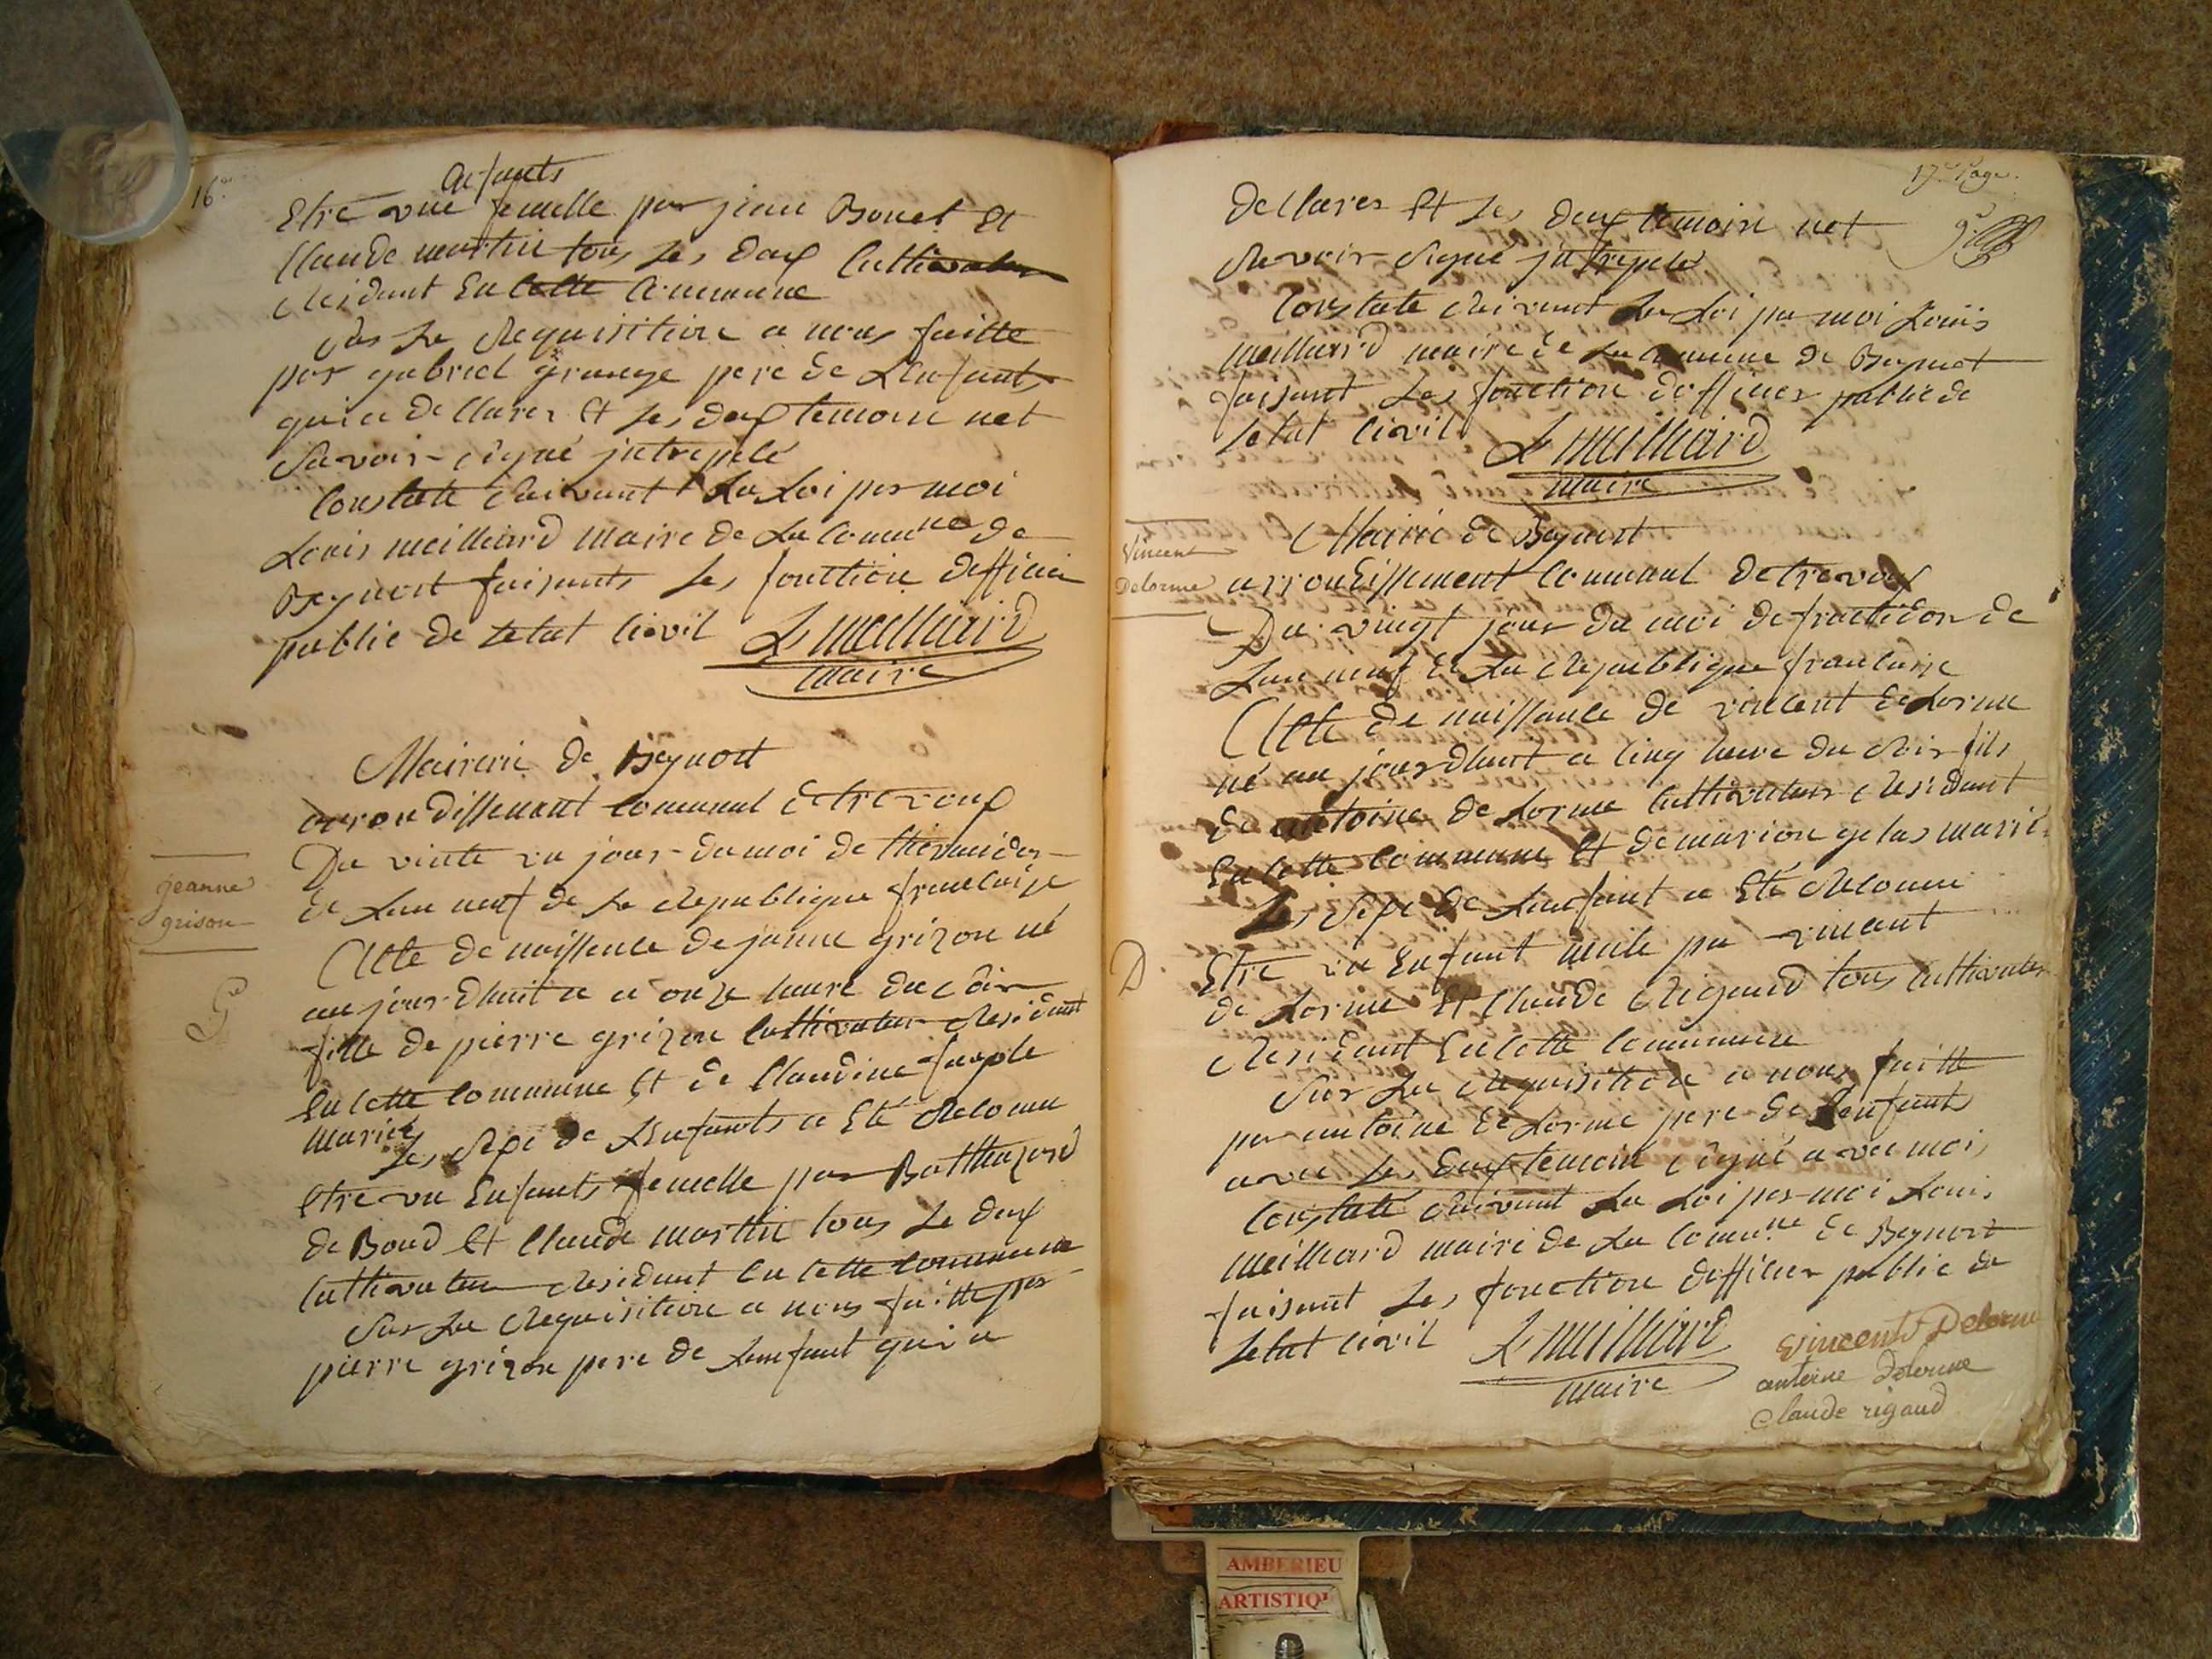 16e
enfants
Etre une femelle par jean Bouet Et
Claude martin tous les deux Cultivateur
Residant En Cette Commune
sur La Requisition a nous faitte
par gabriel grange pere de Lenfants
qui a decllarer Et les deux temoin net
Savoir signé jntrepelé
Constaté Suivant La Loi par moi
Louis meilliard maire de La Comunne de
Beynost faisants les fonction defficier
public de letat Civil L meilliard
maire
Mairerie de Beynost
arrondissement Communal de trevoux
Du vinte un jour du moi de thermidor
de Lan neuf de La Republique francaise
jeanne
grison
Acte de naissence de janne grizon né
au jourdhuit a onze heure du soir
G
fille de pierre grizon Cultivateur Residant
En Cette Commune Et de Claudine
mariés
Les Sexe de Lenfants a Eté Reconnu
Etre un Enfants femelle par Balthazard
de Boud Et Claude martin tous le deux
Cultivateur Residant En Cette Commune
Sur La Requisition a nous faitte par
pierre grizon pere de Lenfant qui a
17e Page.
Decllarer Et les deux temoin net
Savoir Signé jntrepelé
Constaté Suivant La Loi par moi Louis
Meilliard maire de La Commune de Beynost
faisant Les fonction defficier public de
letat Civil L meilliard
maire
Vincent
Delorme
Mairie de Beynost
arrondissement Communal de trevoux
Du vingt jour du moi de fructidor de
Lan neuf de La Republique francaise
Acte de naissance de vincent de Lorme
né au jourdhuit a cinq heure du Soir fils
de antoine de Lorme Cultivateur Residant
En Cette Commune Et de marion gelas mariés
Les Sexe de Lenfant a Eté Reconnu
D
Etre un Enfant male par vincent
de Lorme Et Claude Rigaud tous Cultivateur
Residant En Cette Commune
Sur La Requisition a nous faitte
par antoine de Lorme pere de Lenfants
avec les deux temoin signé avec moi
Constaté Suivant La Loi par moi Louis
Meilliard maire de La Comune de Beynost
faisant Les fonction defficier public de
letat Civil L meilliard
maire
vincent Delorme
antoine Delorme
Claude rigaud
AMBERIEU
ARTISTIQ